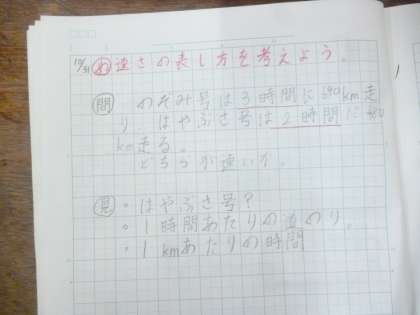 10/31 め 速さの表し方を考えよう。
問 のぞみ号は3時間に690km走
り、はやぶさ号は2時間に
km走る。
どちらが速いか。
見 ・はやぶさ号?
・1時間あたりの道のり。
・1kmあたりの時間